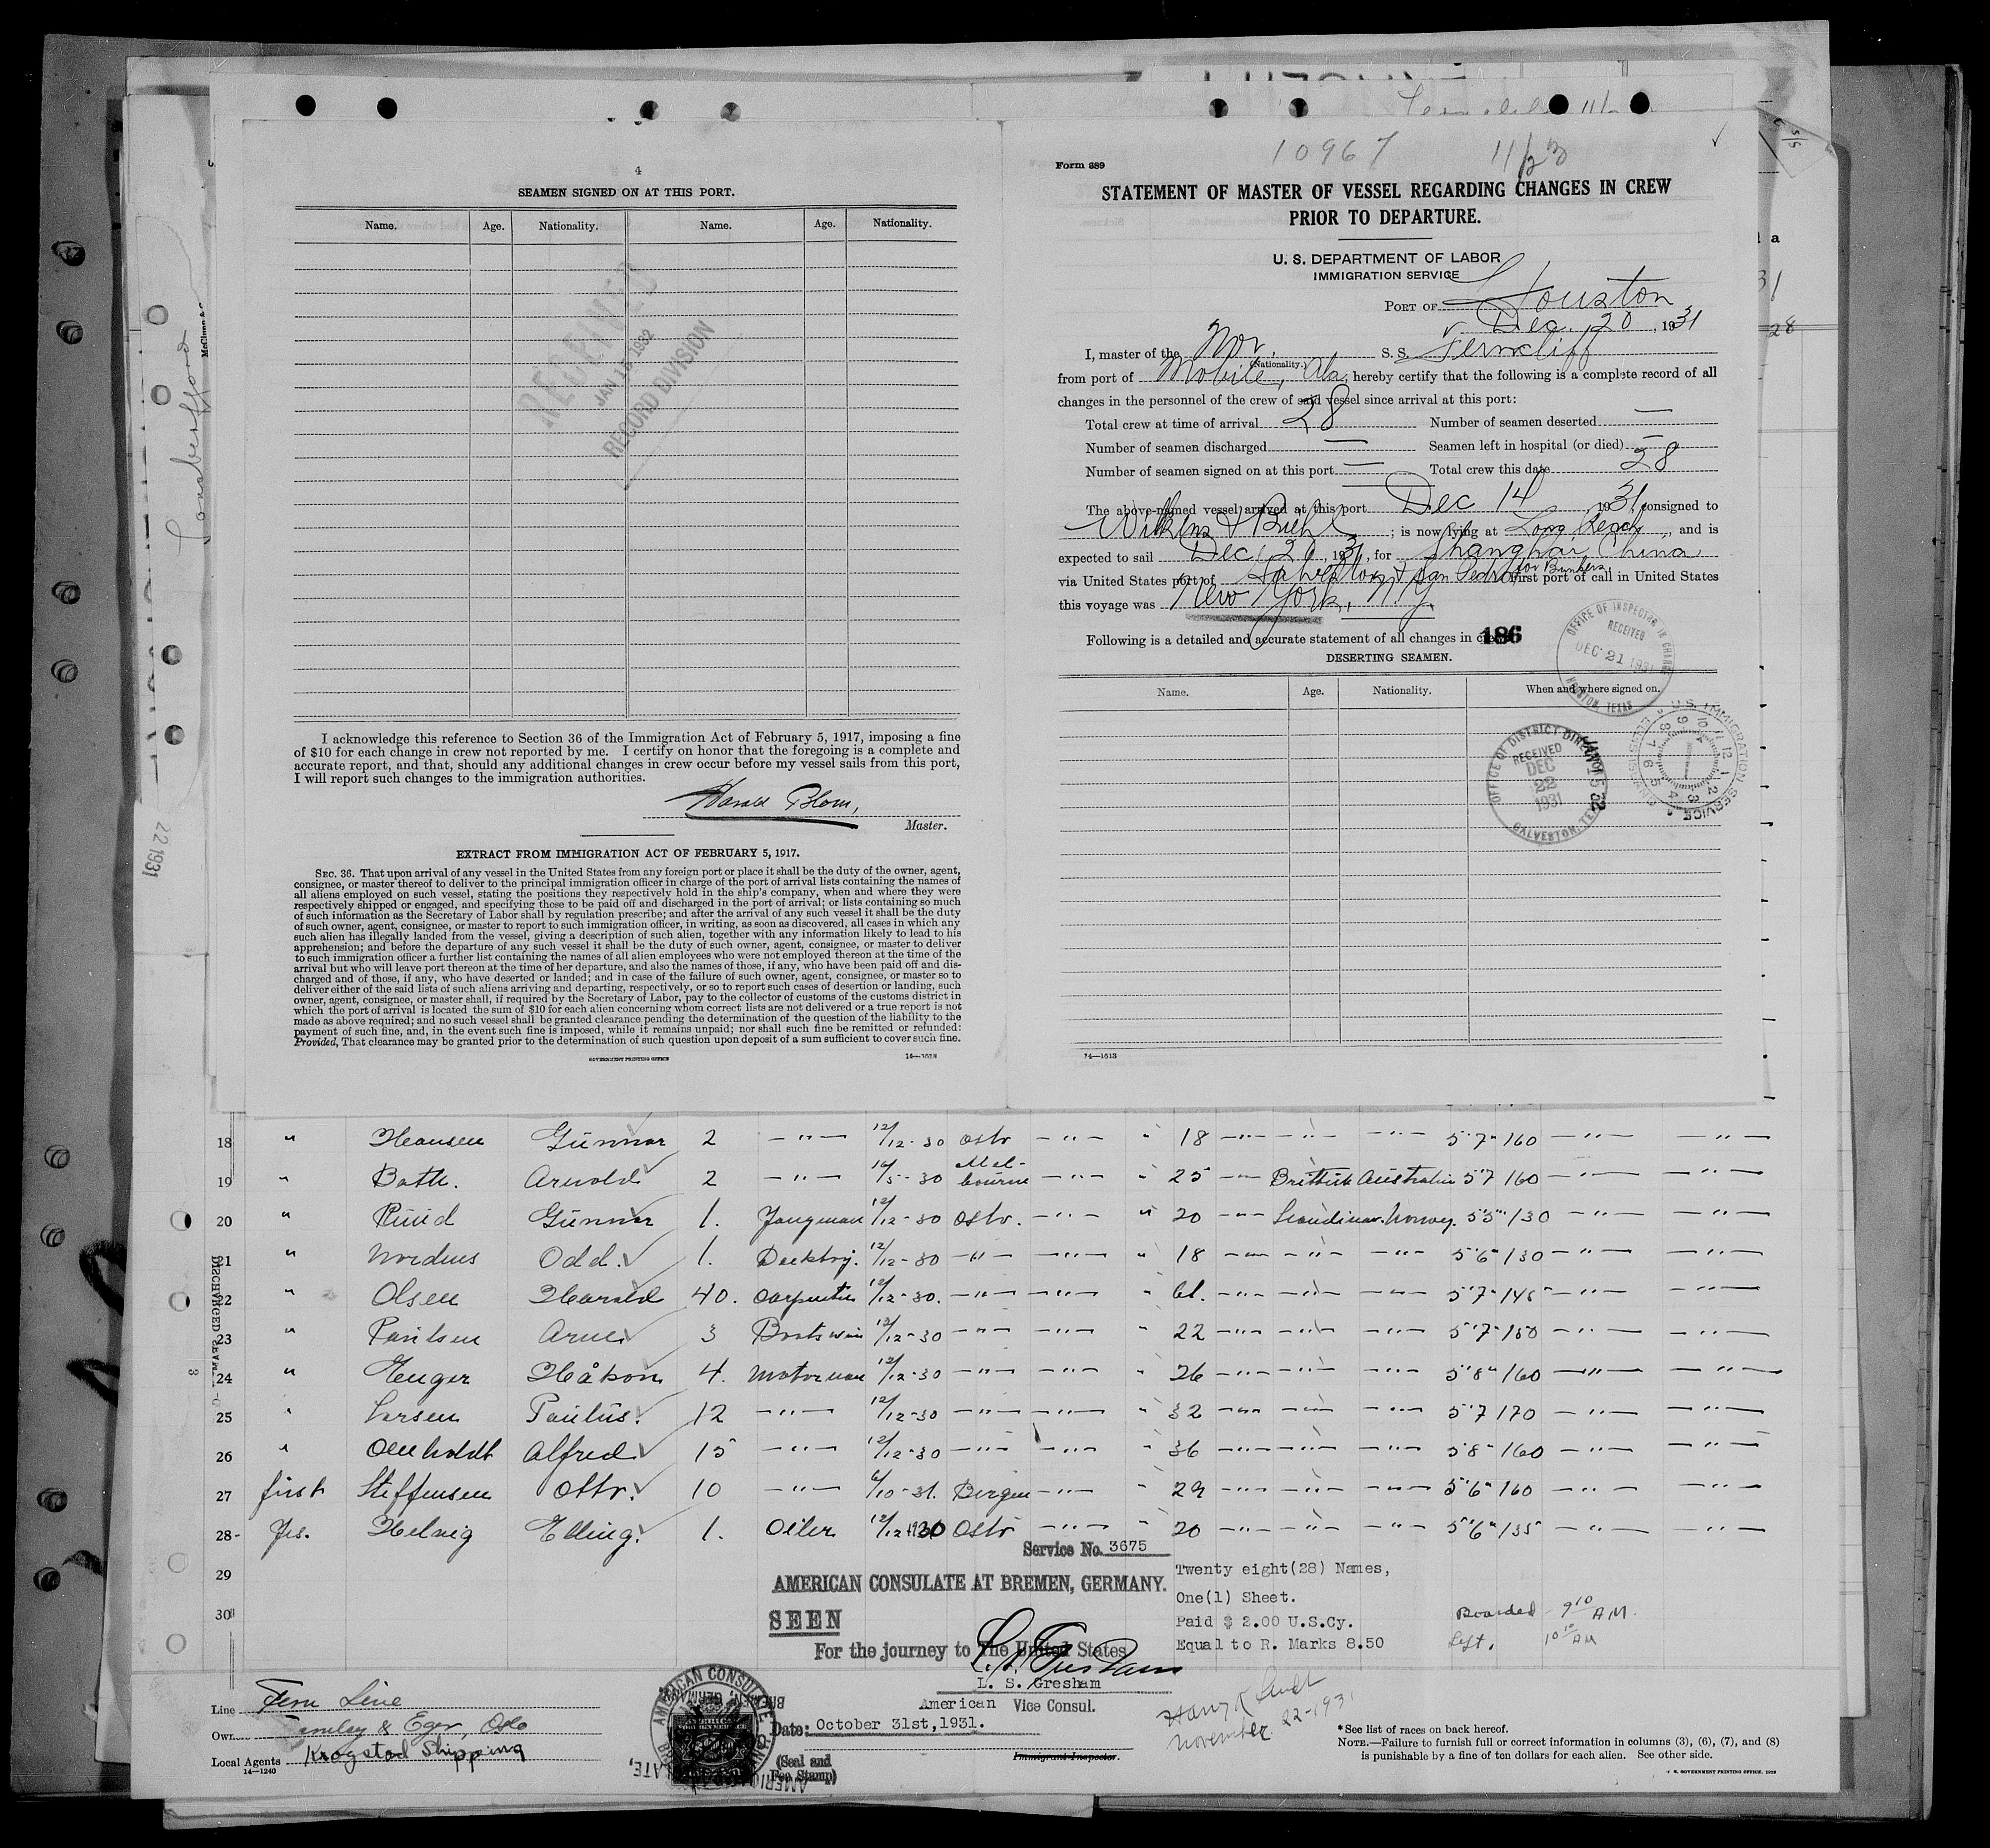 4
SEAMEN SIGNED ON AT THIS PORT.
Name. Age. Nationality. Name. Age. Nationality.
RECEIVED
JAN 15 1932
RECORD DIVISION
I acknowledge this reference to Section 36 of the Immigration Act of February 5, 1917, imposing a fine
of $10 for each change in crew not reported by me. I certify on honor that the foregoing is a complete and
accurate report, and that, should any additional changes in crew occur before my vessel sails from this port,
I will report such changes to the immigration authorities.
Harald Blom,
Master.
EXTRACT FROM IMMIGRATION ACT OF FEBRUARY 5, 1917.
SEC. 36. That upon arrival of any vessel in the United States from any foreign port or place it shall be the duty of the owner, agent,
consignee, or master thereof to deliver to the principal immigration officer in charge of the port of arrival lists containing the names of
all aliens employed on such vessel, stating the positions they respectively hold in the ship's company, when and where they were
respectively shipped or engaged, and specifying those to be paid off and discharged in the port of arrival; or lists containing so much
of such information as the Secretary of Labor shall by regulation prescribe; and after the arrival of any such vessel it shall be the duty
of such owner, agent, consignee, or master to report to such immigration officer, in writing, as soon as discovered, all cases in which any
such alien has illegally landed from the vessel, giving a description of such alien, together with any information likely to lead to his
apprehension; and before the departure of any such vessel it shall be the duty of such owner, agent, consignee, or master to deliver
to such immigration officer a further list containing the names of all alien employees who were not employed thereon at the time of the
arrival but who will leave port thereon at the time of her departure, and also the names of those, if any, who have been paid off and dis-
charged and of those, if any, who have deserted or landed; and in case of the failure of such owner, agent, consignee, or master so to
deliver either of the said lists of such aliens arriving and departing, respectively, or so to report such cases of desertion or landing, such
owner, agent, consignee, or master shall, if required by the Secretary of Labor, pay to the collector of customs of the customs district in
which the port of arrival is located the sum of $10 for each alien concerning whom correct lists are not delivered or a true report is not
made as above required; and no such vessel shall be granted clearance pending the determination of the question of the liability to the
payment of such fine, and, in the event such fine is imposed, while it remains unpaid; nor shall such fine be remitted or refunded:
Provided, That clearance may be granted prior to the determination of such question upon deposit of a sum sufficient to cover such fine.
GOVERNMENT PRINTING OFFICE 14—1613
10967 11/23
Form 689
STATEMENT OF MASTER OF VESSEL REGARDING CHANGES IN CREW
PRIOR TO DEPARTURE.
U. S. DEPARTMENT OF LABOR
IMMIGRATION SERVICE
PORT OF Houston
Dec. 20, 1931
I, master of the Nor. S. S. Ferncliff
(Nationality.)
from port of Mobile, Ala, hereby certify that the following is a complete record of all
changes in the personnel of the crew of said vessel since arrival at this port:
Total crew at time of arrival 28 Number of seamen deserted —
Number of seamen discharged — Seamen left in hospital (or died) —
Number of seamen signed on at this port — Total crew this date 28
The above-named vessel arrived at this port Dec 14, 1931, consigned to
Wilkens & Biehl; is now lying at Long Reach, and is
expected to sail Dec. 20, 1931, for Shanghai, China
via United States port of Galveston & San Pedro for Bunkers. First port of call in United States
this voyage was New York, N.Y.
Following is a detailed and accurate statement of all changes in crew:
186
DESERTING SEAMEN.
Name. Age. Nationality. When and where signed on.
OFFICE OF INSPECTOR IN CHARGE
RECEIVED
DEC 21 1931
HOUSTON, TEXAS
OFFICE OF DISTRICT DIRECTOR
RECEIVED
DEC
22
1931
GALVESTON, TEX
U. S. IMMIGRATION SERVICE
14—1613
22 1931
18 " Hansen Gunnar 2 —"— 12/12-30 Oslo —"— " 18 —"— —"— —"— 5'7" 160 —"— —"—
19 " Bath. Arnold 2 —"— 16/5-30 Melbourne —"— " 25 —"— Brittish Australia 5'7 160 —"— —"—
20 " Ruud Gunnar 1. Jungman 12/12-30 Oslo. —"— " 20 —"— Scandinav. Norway. 5'5" 130 —"— —"—
21 " Nordnes Odd. 1. Deckboy. 12/12-30 —"— —"— " 18 —"— —"— —"— 5'6" 130 —"— —"—
22 " Olsen Harald 40. Carpenter 12/12-30. —"— —"— " 61. —"— —"— —"— 5'7" 145 —"— —"—
23 " Paulsen Arne 3 Boatswain 12/12-30 —"— —"— " 22 —"— —"— —"— 5'7" 150 —"— —"—
24 " Enger Håkon 4. Motorman 12/12-30 —"— —"— " 26 —"— —"— —"— 5'8" 160 —"— —"—
25 " Larsen Paulus. 12 —"— 12/12-30 —"— —"— " 32 —"— —"— —"— 5'7 170 —"— —"—
26 " Alfred 15 —"— 12/12-30 —"— —"— " 36 —"— —"— —"— 5'8" 160 —"— —"—
27 first Steffensen Otto. 10 —"— 6/10-31. Bergen —"— " 29 —"— —"— —"— 5'6" 160 —"— —"—
28 Yes. Helvig Elling. 1. Oiler 12/12-1930 Oslo —"— " 20 —"— —"— —"— 5'6" 135 —"— —"—
29
30
Service No. 3675
AMERICAN CONSULATE AT BREMEN, GERMANY.
SEEN
For the journey to The United States
L. S. Gresham
L. S. Gresham
American Vice Consul.
Date: October 31st, 1931.
(Seal and
Fee Stamp)
Immigrant Inspector.
Twenty eight(28) Names,
One(1) Sheet.
Paid $ 2.00 U.S.Cy.
Equal to R. Marks 8.50
Boarded - 9 10 A.M.
Left, 10 10 AM
November 22-1931
Line Fern Line
Own. Fearnley & Eger, Oslo
Local Agents Krogstad Shipping
14—1240
AMERICAN CONSULATE, BREMEN, GERMANY
*See list of races on back hereof.
NOTE.—Failure to furnish full or correct information in columns (3), (6), (7), and (8)
is punishable by a fine of ten dollars for each alien. See other side.
U. S. GOVERNMENT PRINTING OFFICE, 1929